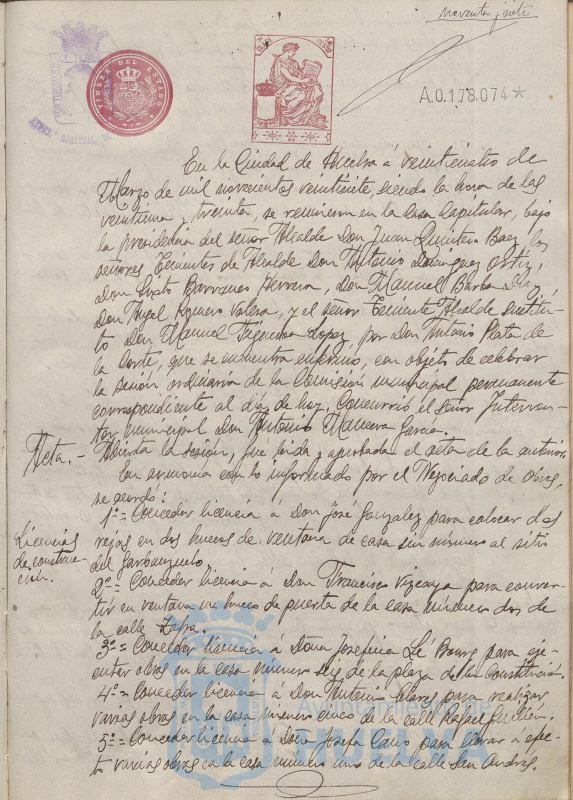 noventa y siete
TIMBRE DEL ESTADO
A.0.178.074*
En la Ciudad de Huelva á veinticuatro de
Marzo de mil novecientos veintisiete, siendo la hora de las
veintiuna y treinta, se reunieron en la Casa Capitular, bajo
la presidencia del señor Alcalde Don Juan Quintero Baez los
señores Tenientes de Alcalde Don Antonio Dominguez Ortiz,
Don Sixto Barranco Herrera, Don Manuel Barba Diaz,
Don Angel Romero Valera, y el señor Teniente Alcalde sustitu-
to Don Manuel Figueroa Lopez, por Don Antonio Plata de
la Corte, que se encuentra enfermo, con objeto de celebrar
la sesión ordinaria de la Comisión municipal permanente
correspondiente al día de hoy. Concurrió el señor Interven-
tor municipal Don Antonio Garcia.
Acta.- Abierta la sesión, fue leida y aprobada el acta de la anterior.
En armonia con lo informado por el Negociado de obras,
se acordó:
Licencias de construc- ción.
1º= Conceder licencia á Don José Gonzalez para colocar dos
rejas en dos huecos de ventana de casa sin número al sitio
del Garbanzuelo.
2º= Conceder licencia á Don Francisco Vizcaya para conver-
tir en ventana un hueco de puerta de la casa número dos de
la calle Zafra.
3º= Conceder licencia á Dona Josefina Le Bourg para eje-
cutar obras en la casa número de la plaza de la Constitución.
4º= Conceder licencia á Don Antonio para realizar
varias obras en la casa número cinco de la calle Rafael Guillén.
5º= Conceder licencia á Doña Josefa Cano para llevar á efec-
to varias obras en la casa número uno de la calle San Andrés.
Ayuntamiento de
HUELVA